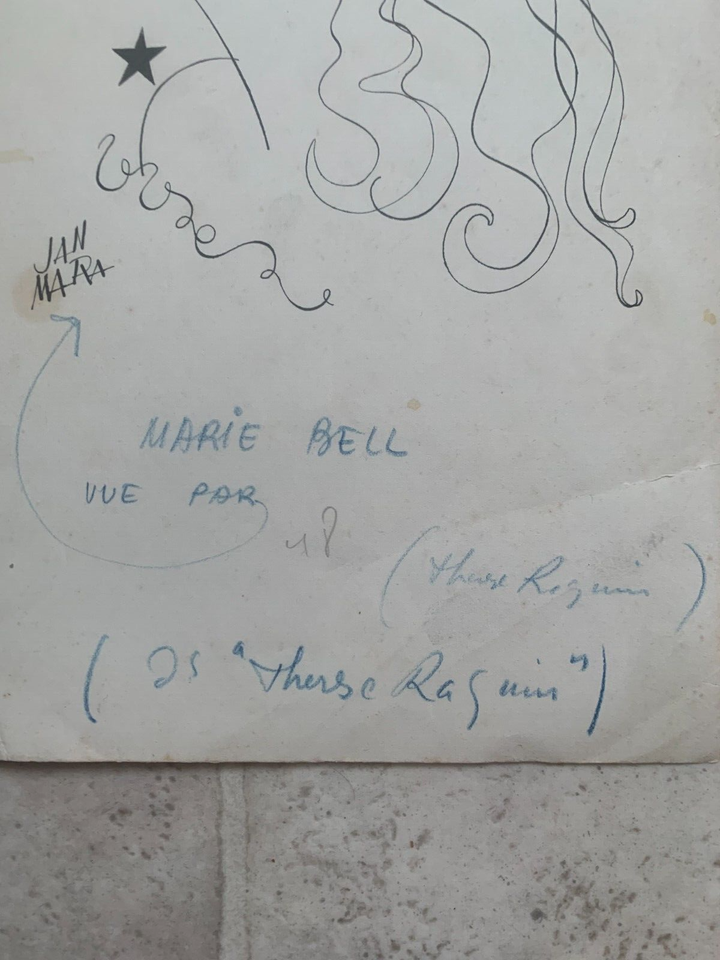 JAN
MARA
MARIE BELL
VUE PAR
(Therese Raquin)
( "Therese Raquin")